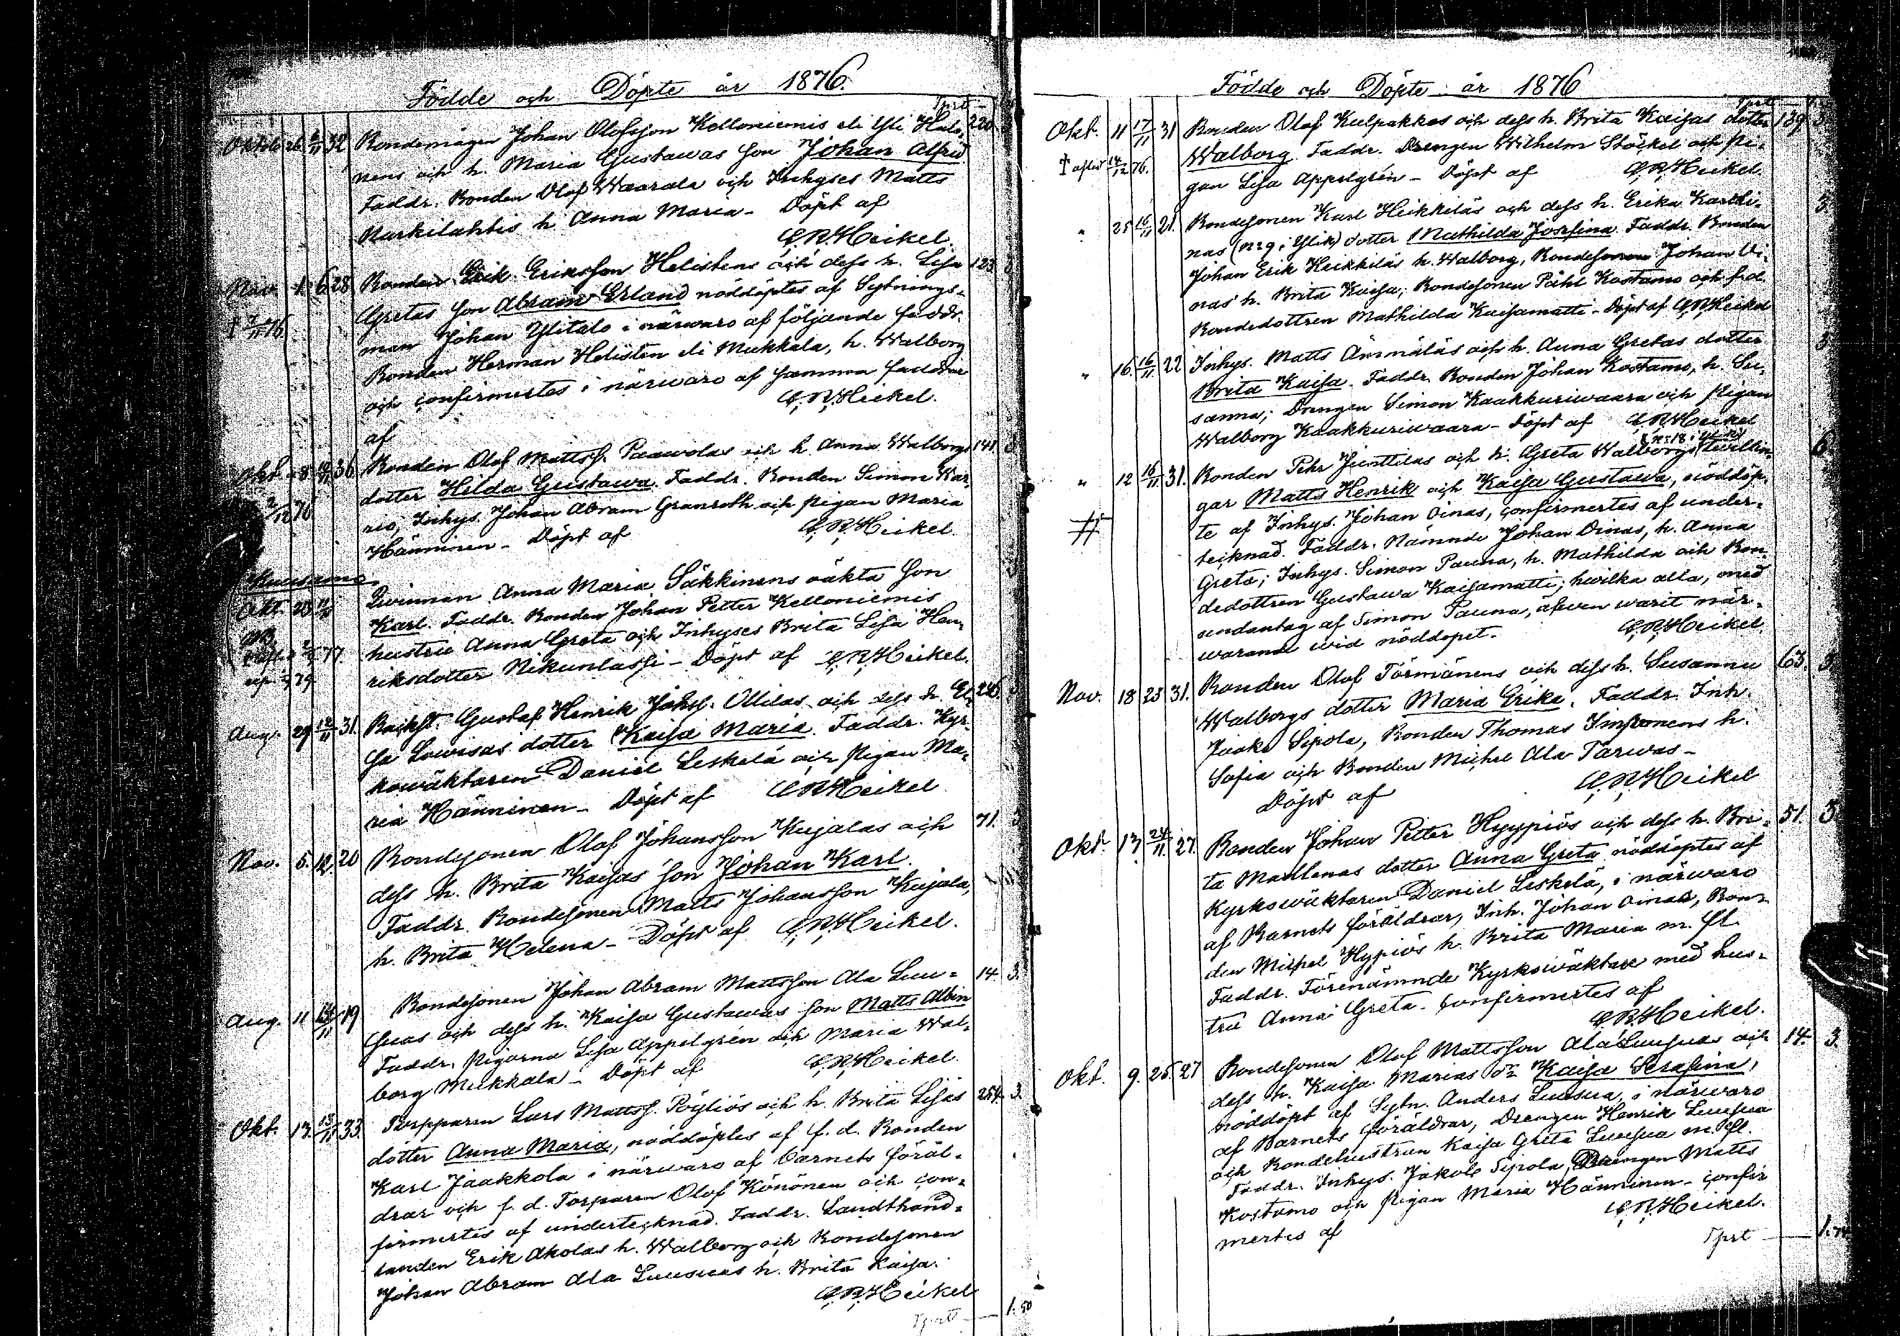 Födde och Döpte år 1876.
Tprt —
Oktob. 26 5/11 32 Bondemågen Johan Olofsson Kelloniemis eli Yli Hals 220.
nens och h. Maria Gustawas son Johan Alfrid
Faddr. Bonden Olof Waarala och Inhyses Matts
Narkilahtis h. Anna Maria - Döpt af
C.R. Heikel.
Nov. 1. 6. 28 Bonden Erik Eriksson Helistens och dess h. Lisa 123
Gretas son Abram Erland nöddöptes af Sytnings-
† 7/11 76. man Johan Ylitalo i närwaro af följande faddr.
Bonden Herman Helisten eli Mukkala, h. Walborg
och confirmertes i närwaro af samma faddrar
af C.R. Heikel.
Okt. 8 36 Bonden Olof Mattss. Paawolas och h. Anna Walborgs 141.
dotter Hilda Gustawa. Faddr. Bonden Simon Kar
2/12 76 rio, Inhys. Johan Abram Granroth och Pigan Maria
Hänninen - Döpt af C.R. Heikel.
Kuusamo
Okt. 23 Qwinnan Anna Maria Säkkinens oäkta son
Karl. Faddr. Bonden Johan Petter Kelloniemis
77. hustru Anna Greta och Inhyses Brita Lisa Hen-
79 riksdotter Nikunlassi - Döpt af C.R. Heikel.
Aug. 29 12/11 31. Backst. Gustaf Henrik Johss. Ollilas och dess h. El- 246.
sa Lowisas dotter Kaisa Maria. Faddr. Kyr-
kowäktaren Daniel Leskelä och Pigan Ma-
ria Hänninen - Döpt af C.R. Heikel
Nov. 5. 12. 20 Bondesonen Olof Johansson Kujalas och 71. 3
dess h. Brita Kaisas son Johan Karl.
Faddr. Bondesonen Matts Johansson Kujala,
h. Brita Helena - Döpt af C.R. Heikel.
Aug. 11 /11 19 Bondesonen Johan Abram Mattsson Ala Luu- 14. 3.
suas och dess h. Kaisa Gustawas son Matts Albin
Faddr. Pigorna Lisa Appelgrén och Maria Wal-
borg Mukkala - Döpt af C.R. Heikel.
Okt. 13. 13/11 33. Torpparen Lars Mattss. Pöyliös och h. Brita Lisas 254. 3.
dotter Anna Maria, nöddöptes af f.d. Bonden
Karl Jaakkola i närwaro af barnets föräl-
drar och f.d. Torparen Olof Könönen och con-
firmertes af undertecknad. Faddr. Landthand-
landen Erik Akolas h. Walborg och Bondesonen
Johan Abram Ala Luusuas h. Brita Kaisa.
C.R. Heikel
Tprt — 1.50
Födde och Döpte år 1876
Tprt —
Okt. 11 17/11 31 Bonden Olof Kulpakkas och dess h. Brita Kaisas dotter 139 3.
† aflid 14/12 76. Walborg. Faddr. Drengen Wilhelm Stöckel och Pi-
gan Lisa Appelgrén - Döpt af C.R. Heikel.
" 25 15/11 21. Bondesonen Karl Heikkiläs och dess h. Erika Karoli- 3.
nas (n:o 9 i Ylik) dotter Mathilda Josefina. Faddr. Bonden
Johan Erik Heikkiläs h. Walborg, Bondesonen Johan Oi-
nas' h. Brita Kaisa, Bondesonen Påhl Kostamo och f.d.
Bondedottren Mathilda Kaisamatti - Döpt af C.R. Heikel
" 16. 16/11 22 Inhys. Matts Ämmäläs och h. Anna Gretas dotter 3
Brita Kaisa. Faddr. Bonden Johan Kostamo, h. Su-
sanna; Drengen Simon Kaakkuriwaara och Pigan
Walborg Kaakkuriwaara - Döpt af C.R. Heikel
" 12 16/11 31. Bonden Pehr Junttilas och h. Greta Walborgs (n:o 18 i Ylik) Twillin- 6.
gar Matts Henrik och Kaisa Gustawa, nöddöp-
te af Inhys. Johan Oinas, confirmertes af under-
tecknad. Faddr. Nämnde Johan Oinas, h. Anna
Greta; Inhys. Simon Pauna, h. Mathilda och Bon-
dedottren Gustawa Kaisamatti; hwilka alla, med
undantag af Simon Pauna, äfwen warit när-
warande wid nöddopet. C.R. Heikel.
Nov. 18 23 31. Bonden Olof Törmänens och dess h. Susanna 63. 3.
Walborgs dotter Maria Erika. Faddr. Inh.
Jaako Sipola, Bonden Thomas Imponens h.
Sofia och Bonden Michel Ala Tarwas -
Döpt af C.R. Heikel
Okt. 17. 24/11 27. Bonden Johan Petter Hyypiös och dess h. Bri- 51. 3.
ta Madlenas dotter Anna Greta nöddöptes af
Kyrkowäktaren Daniel Leskelä, i närwaro
af Barnets föräldrar, Inh. Johan Oinas, Bon-
den Michel Hypiös h. Brita Maria m. fl.
Faddr. Förenämnde Kyrkowäktare med hus-
tru Anna Greta. Confirmertes af
C.R. Heikel.
Okt. 9. 25. 27 Bondesonen Olof Mattsson Ala Luusuas och 14. 3.
dess h. Kaisa Marias dr Kaisa Serafina,
nöddöpt af Sytn. Anders Luusua, i närwaro
af Barnets föräldrar, Drengen Henrik Luusua
och Bondehustrun Kaisa Greta Luusua m. fl.
Faddr. Inhys. Jakob Sipola, Drengen Matts
Kostamo och Pigan Maria Hänninen - Confir
mertes af C.R. Heikel.
Tprt —